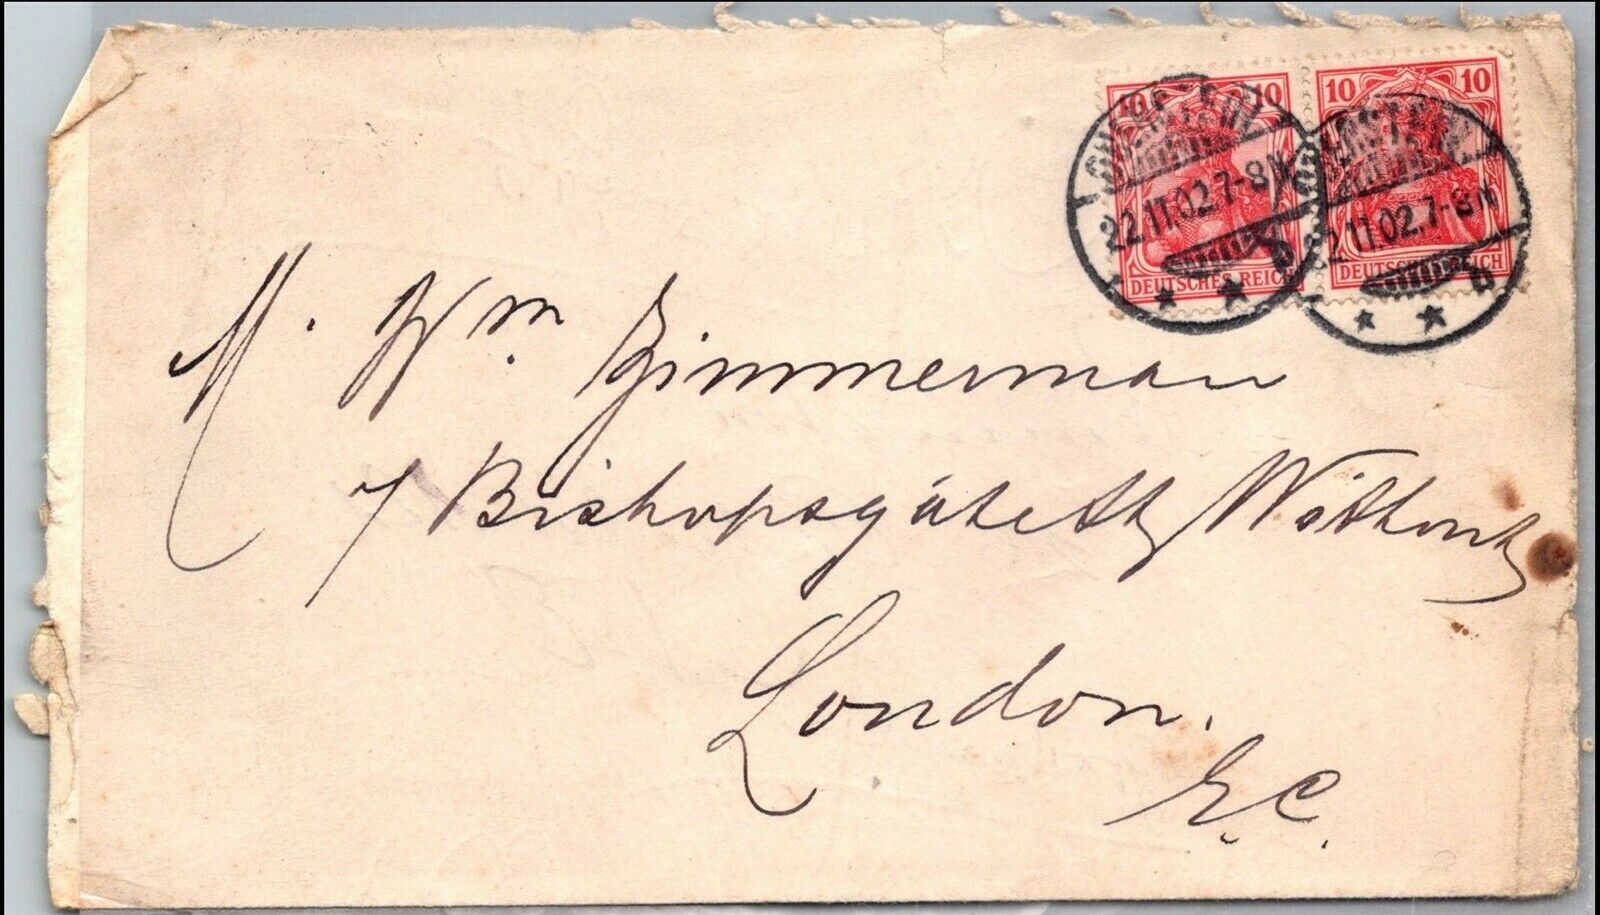 10 10 10 10
22.11.02.7-8N 2.11.02.7-8N
DEUTSCHES REICH DEUTSCHES REICH
b b
M. Wm. Zimmerman
7 Bishopsgate St Without
London.
E.C.